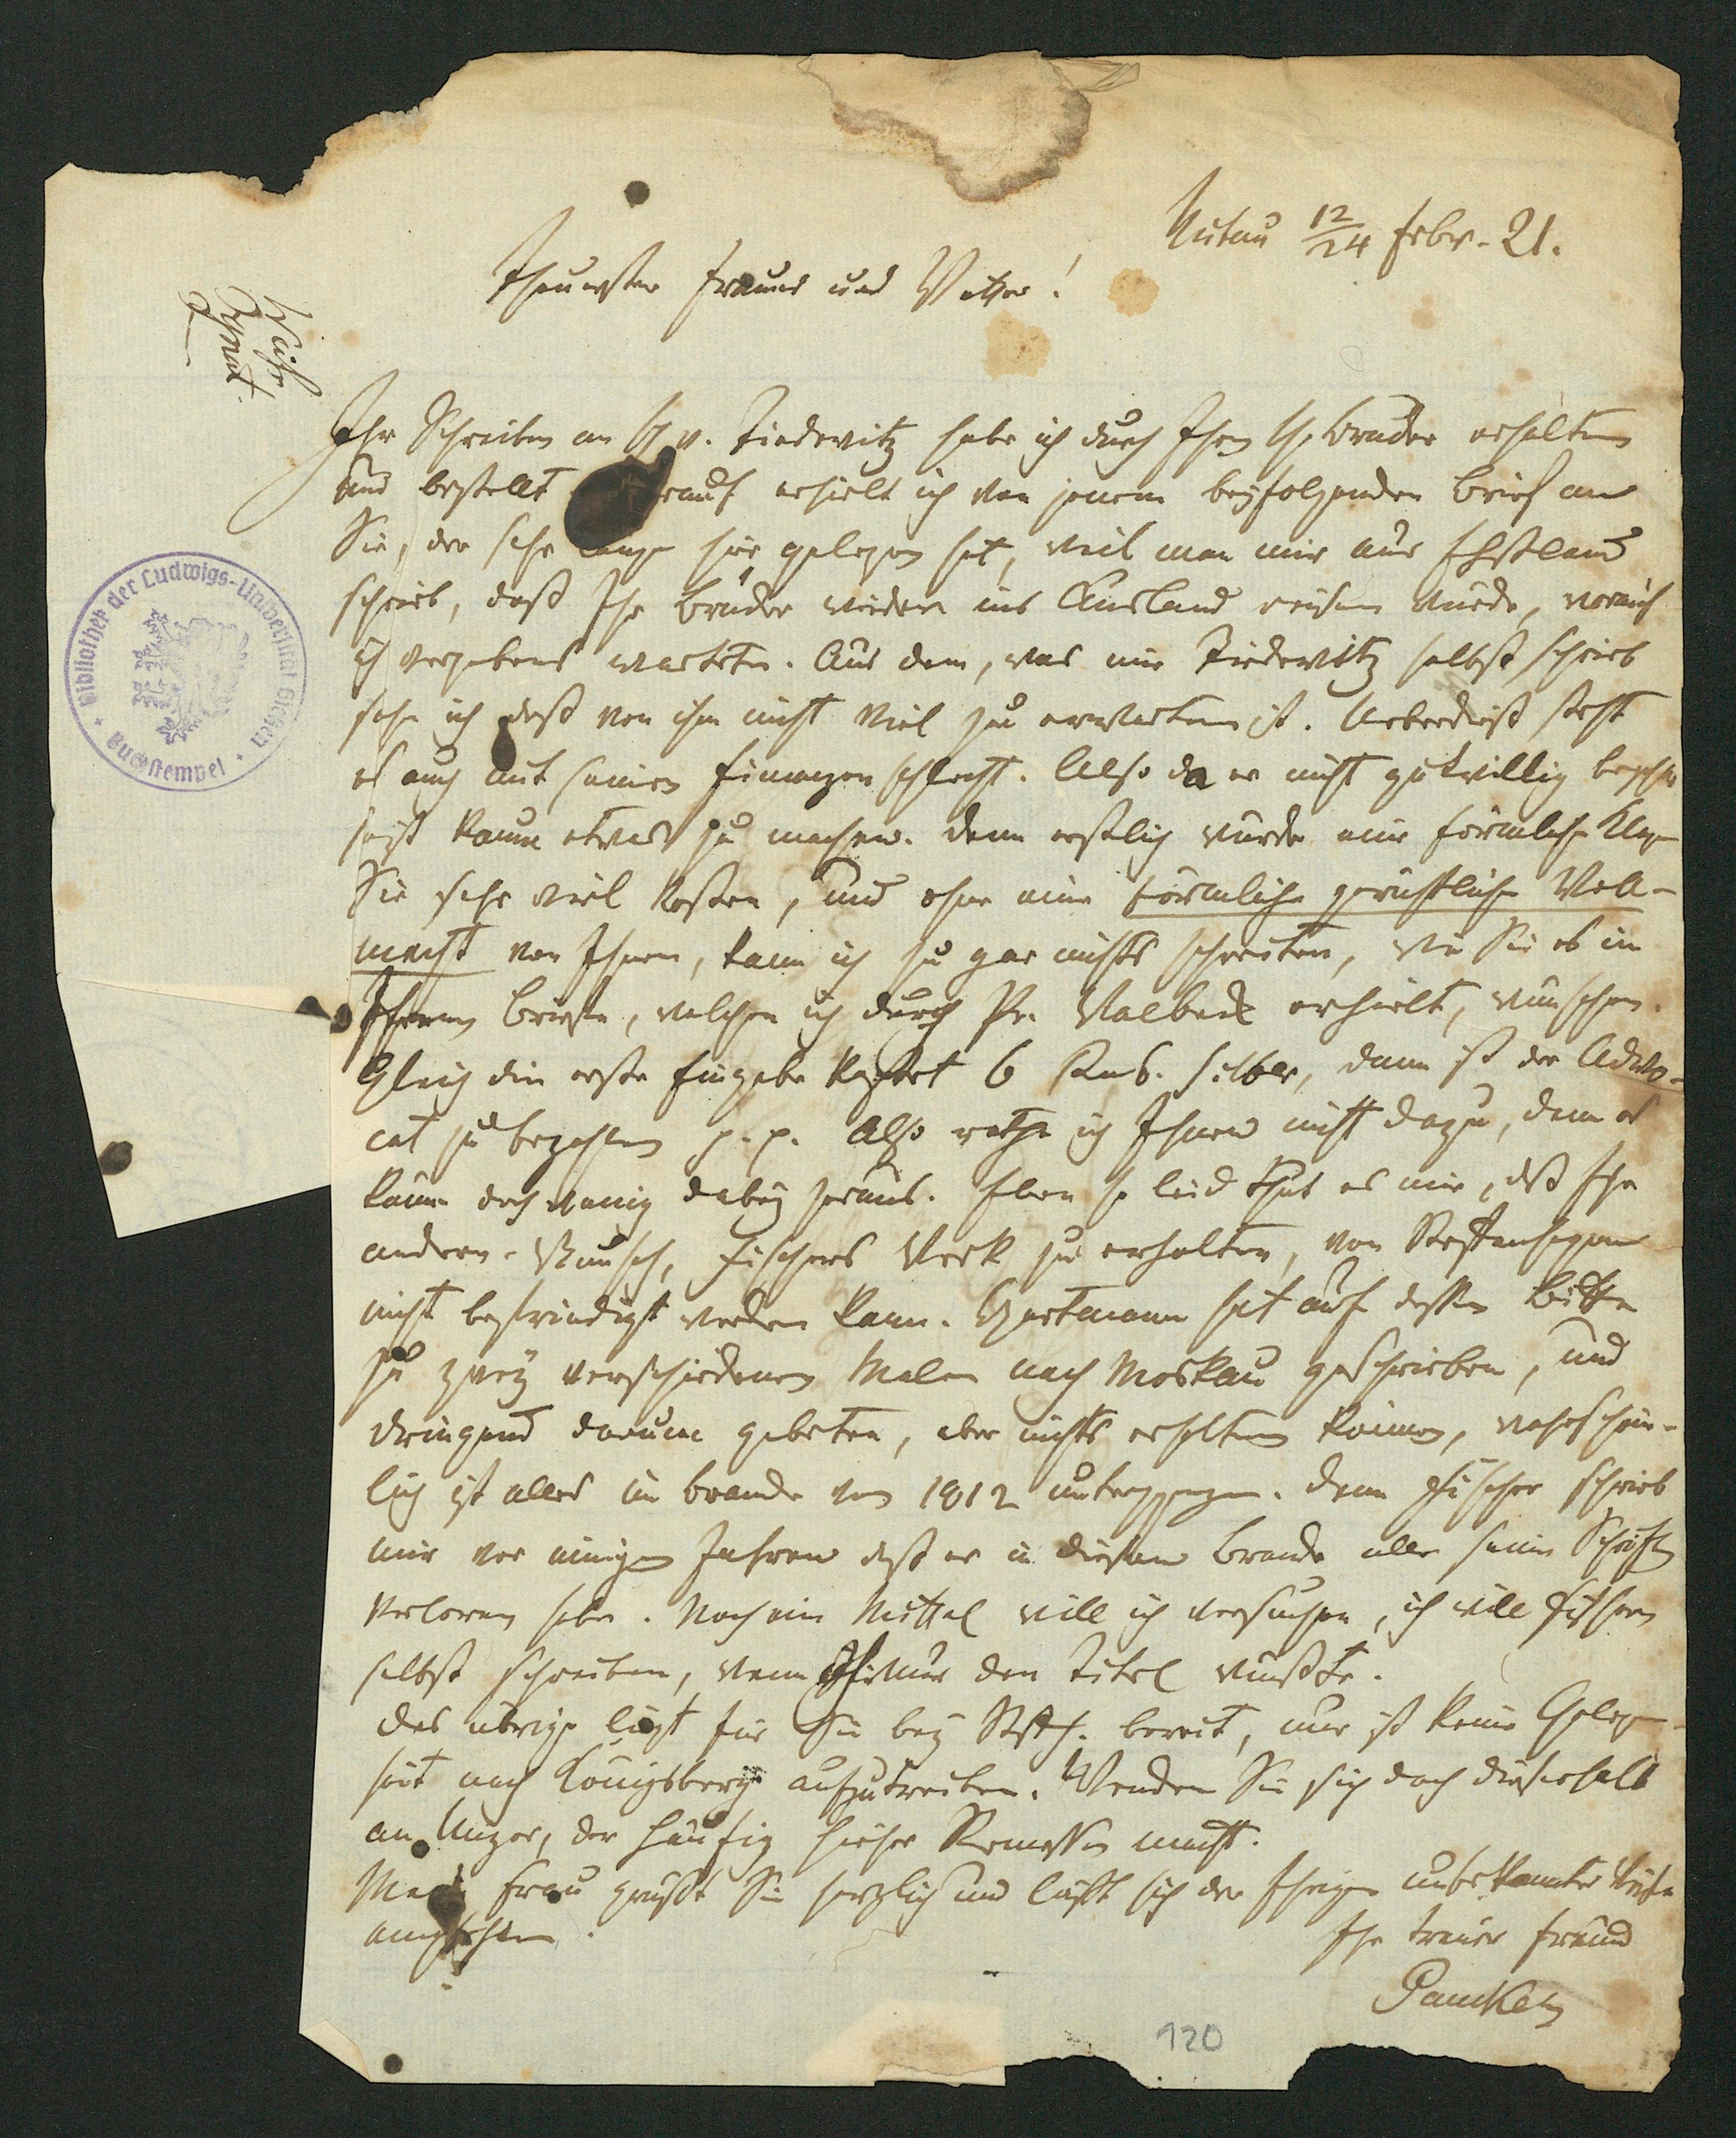 Mitau 12/24 Febr. 21.
Theuerster Freund und Vetter!
Ihr Schreiben an H v. Tiedewitz habe ich durch Ihren H. Bruder erhalten
und bestellt. rauf erhielt ich von jenem beyfolgenden Brief an
Sie, der sehr lange hier gelegen hat, weil man mir aus Ehstland
schrieb, daß Ihr Bruder wieder ins Ausland reisen würde, worauf
ich vergebens wartete. Aus dem, was mir Tiedewitz selbst schrieb
sehe ich daß von ihm nicht viel zu erwarten ist. Ueberdieß steht
es auch mit seinen Finanzen schlecht. Also da er nicht gutwillig
ist kaum etwas zu machen. Denn erstlich würde eine förmliche Klage
Sie sehr viel kosten, und ohne eine förmliche gerichtliche Voll-
macht von Ihnen, kann ich zu gar nichts schreiten, wie Sie es in
Ihrem Briefe, welchen ich durch Pr. Valbeck erhielt, wünschen.
Gleich die erste Eingabe kostet 6 Rub. Silber, dann ist der Advo-
cat zu bezahlen p. p. Also rathe ich Ihnen nicht dazu, denn es
käme doch wenig dabey heraus. Eben so leid thut es mir, daß Ihr
anderer Wunsch, Fischers Werk zu erhalten, von
nicht befriedigt werden kann. Hartmann hat auf dessen Bitte
zu zwey verschiedenen Malen nach Moskau geschrieben, und
dringend darum gebeten, aber nichts erhalten können, wahrschein-
lich ist alles im Brande von 1812 untergegangen. Denn Fischer schrieb
mir vor einigen Jahren daß er in diesem Brande alle seine Schriften
verloren habe. Noch ein Mittel will ich versuchen, ich will Fischern
selbst schreiben, wenn nur den Titel wüßte.
Das übrige liegt für Sie bey bereit, nur ist keine Gelegen-
heit nach Königsberg aufzutreiben. Wenden Sie sich doch dieserhalb
an Unzer, der häufig hieher Remessen macht.
Meine Frau grüßt Sie herzlich und läßt sich der Ihrigen unbekannter Weise
empfehlen.
Ihr treuer Freund
Paucker
Bibliothek der Ludwigs-Universität Gießen
Buchstempel
120